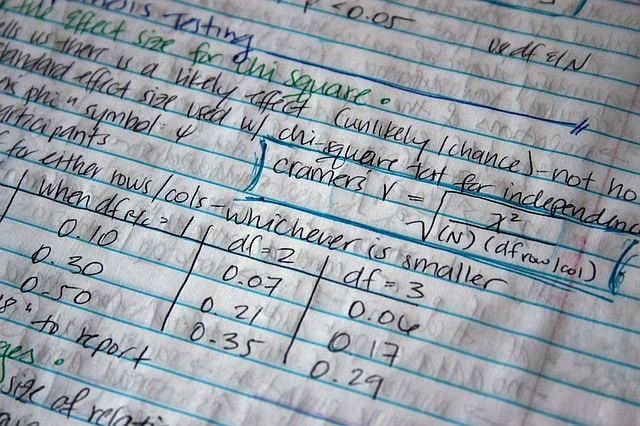 P < 0.05
Testing
ve df &/N
effect size for chi square.
us there is a likely effect (unlikely / chance) - not
effect size used w/ chi-square test for independence
phi" symbol: ψ
cramers V = √ x² / (N) (df row/col)
participants
for either rows/cols - whichever is smaller
when df r/c = 1 | df = 2 | df = 3
0.10 | 0.07 | 0.06
0.30 | 0.21 | 0.17
0.50 | 0.35 | 0.29
" to report
size of